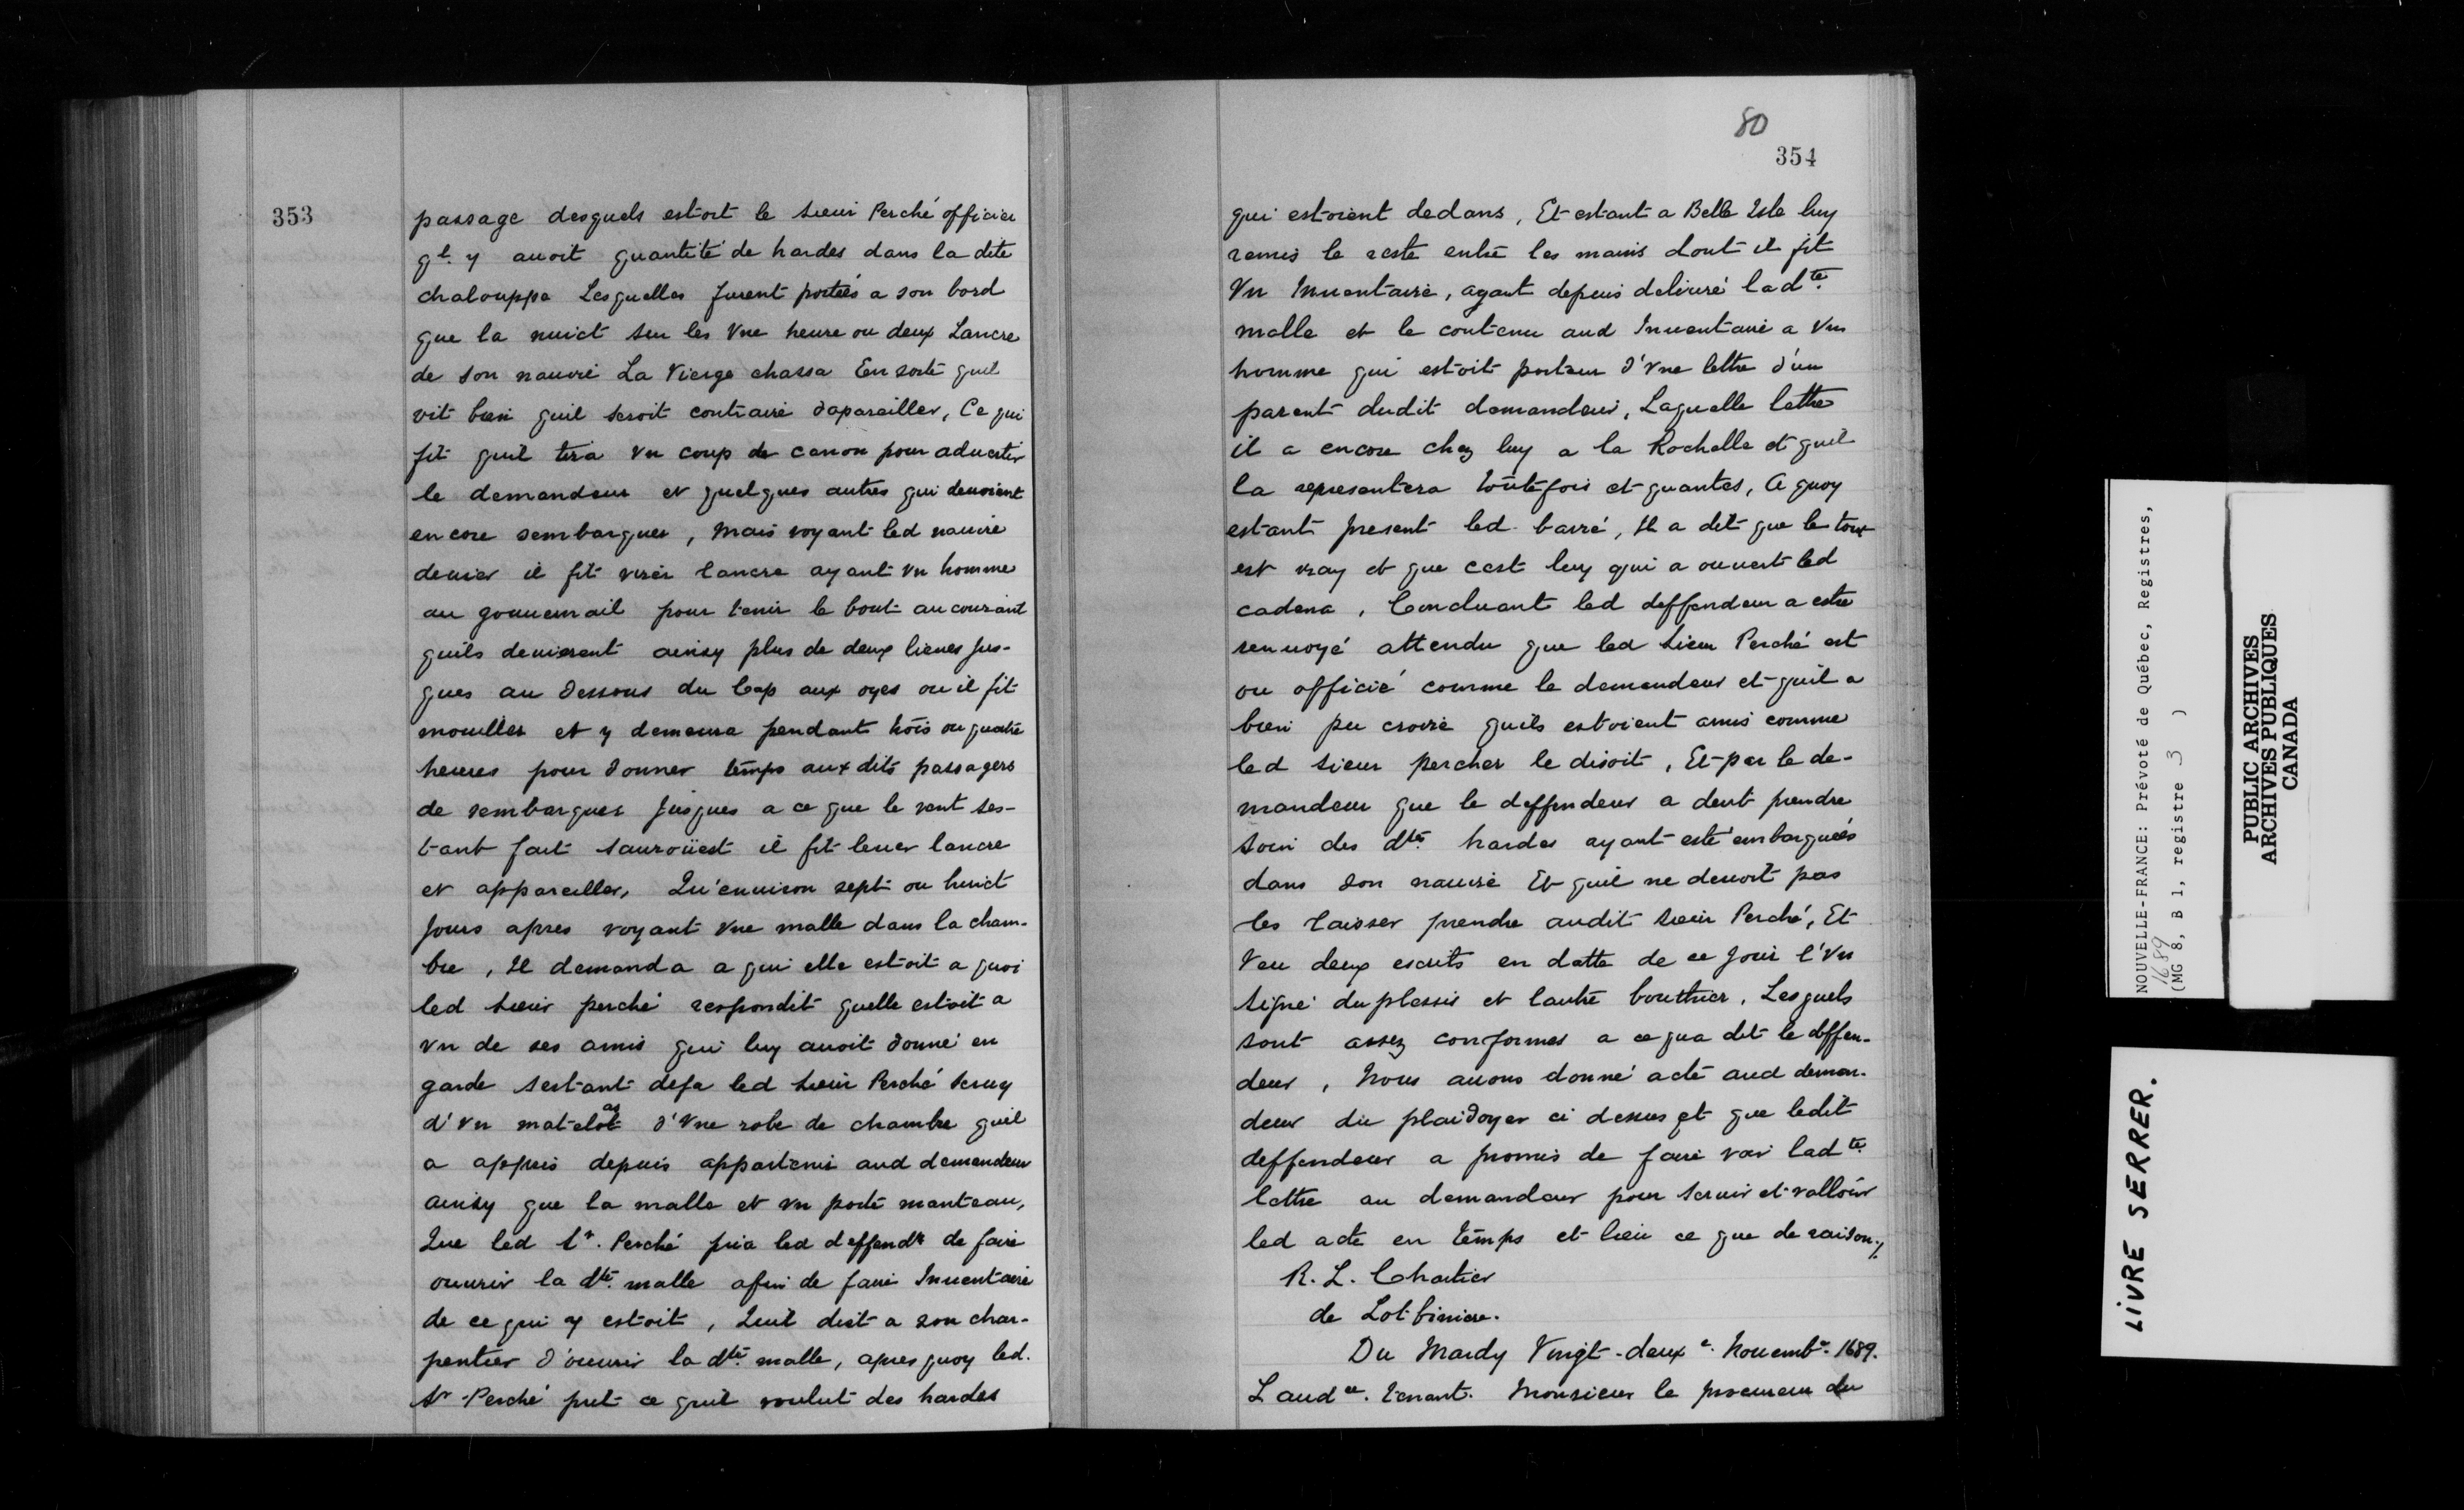 353
passage desquels estoit le sieur Perché officier
qt. y auoit quantité de hardes dans la dite
chalouppe Lesquelles furent portées a son bord
que la nuict sur les Vne heure ou deux Lancre
de son nauire La Vierge chassa En sorte quil
vit bien quil seroit contraire dapareiller, Ce qui
fit quil tira vn coup de canon pour aduertir
le demandeur et quelques autres qui deuoient
encore sembarquer, mais voyant led nauire
deriver il fit virer lancre ayant vn homme
au gouuernail pour tenir le bout au courant
quils deuierent ainsy plus de deux lieues Jus-
ques au dessous du Cap aux oyes ou il fit
mouiller et y demeura pendant trois ou quatre
heures pour donner temps aux dits passagers
de sembarquer Jusques a ce que le vent ses-
tant fait saurouest il fit leuer lancre
et appareiller, Qu'enuiron sept ou huict
Jours apres voyant vne malle dans la cham-
bre, Il demanda a qui elle estoit a quoi
led sieur perché respondit quelle estoit a
vn de ses amis qui luy auoit donné en
garde sestant deja led sieur Perché seruy
d'vn matelas d'vne robe de chambre quil
a appris depuis appartenir aud demandeur
ainsy que la malle et vn porte manteau,
Que led Sr. Perché pria led deffendr de faire
ouurir la dte. malle afin de faire Inuentaire
de ce qui y estoit, Quil dict a son char-
pentier d'ouurir la dte. malle, apres quoy led.
Sr Perché prit ce quil voulut des hardes
80
354
qui estoient dedans, Et estant a Belle Isle luy
remis le reste entre les mains dont il fit
Vn Inuentaire, ayant depuis deliuré ladte.
malle et le contenu aud Inuentaire a vn
homme qui estoit porteur d'vne lettre d'un
parent dudit demandeur, Laquelle lettre
il a encore chez luy a la Rochelle et quil
la representera toutefois et quantes, A quoy
estant present led. barré, Il a dit que le tout
est vray et que cest luy qui a ouuert led
cadena, Concluant led deffendeur a estre
renuoyé attendu que led sieur Perché est
ou officié comme le demandeur et quil a
bien pu croire quils estoient amis comme
led sieur percher le disoit, Et par le de-
mandeur que le deffendeur a deub prendre
soin des dtes. hardes ayant esté embarquées
dans son nauire Et quil ne deuoit pas
les laisser prendre audit sieur Perché, Et
Veu deux escrits en datte de ce Jour l'Vn
signé duplessis et lautre bouthier, Lesquels
sont assez conformes a ce qua dit le deffen-
deur, Nous auons donné acte aud deman-
deur du plaidoyer ci dessus et que ledit
deffendeur a promis de faire voir ladte.
lettre au demandeur pour seruir et valloir
led acte en temps et lieu ce que de raison ./.
R. L. Chartier
de Lotbiniere.
Du Mardy Vingt-deuxe. Nouembr. 1689.
Laudce. tenant. Monsieur le procureur du
NOUVELLE-FRANCE: Prévoté de Québec, Registres,
1689
(MG 8, B 1, registre 3 )
PUBLIC ARCHIVES
ARCHIVES PUBLIQUES
CANADA
LIVRE SERRER.